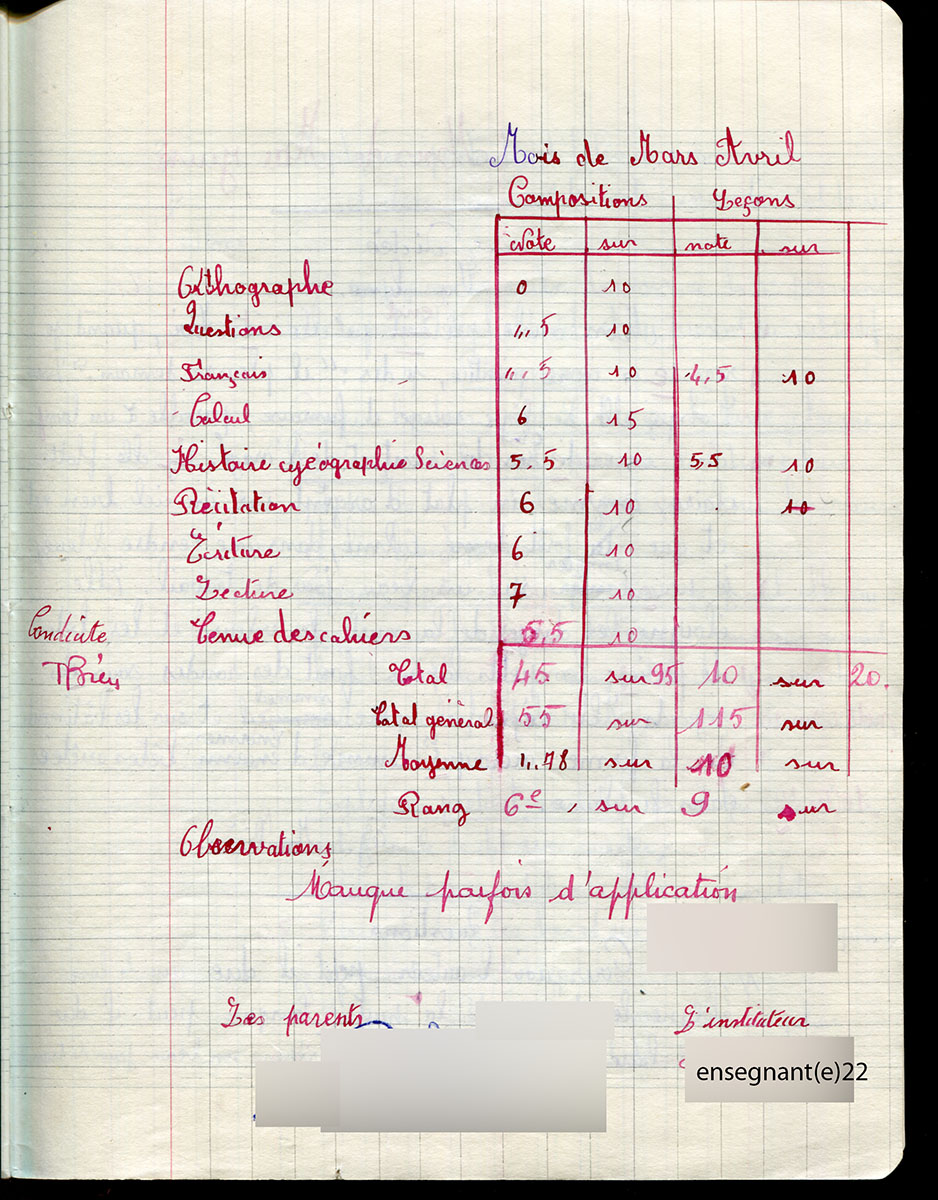 Mois de Mars Avril
Compositions Leçons
Note sur note sur
Orthographe 0 10
Questions 4,5 10
Français 4,5 10 4,5 10
Calcul 6 15
Histoire Géographie Sciences 5,5 10 5,5 10
Récitation 6 10 10
Ecriture 6 10
Lecture 7 10
Conduite
Tenue des cahiers 5,5 10
TBien
Total 45 sur 95 10 sur 20.
Total général 55 sur 115 sur
Moyenne 4,78 sur 10 sur
Rang 6e, sur 9 sur
Observations
Manque parfois d'application
Les parents L'instituteur
ensegnant(e)22